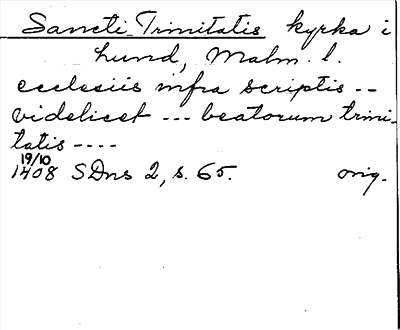 Sancti Trinitatis kyrka i
Lund, Malm. l.
ecclesiis infra scriptis --
videlicet --- beatorum trini-
tatis ----
19/10
1408 SDns 2, s. 65. orig.